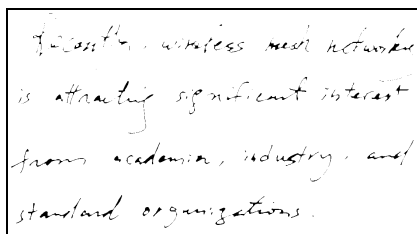 Recently, wireless mesh networks
is attracting significant interest
from academia, industry, and
standard organizations.